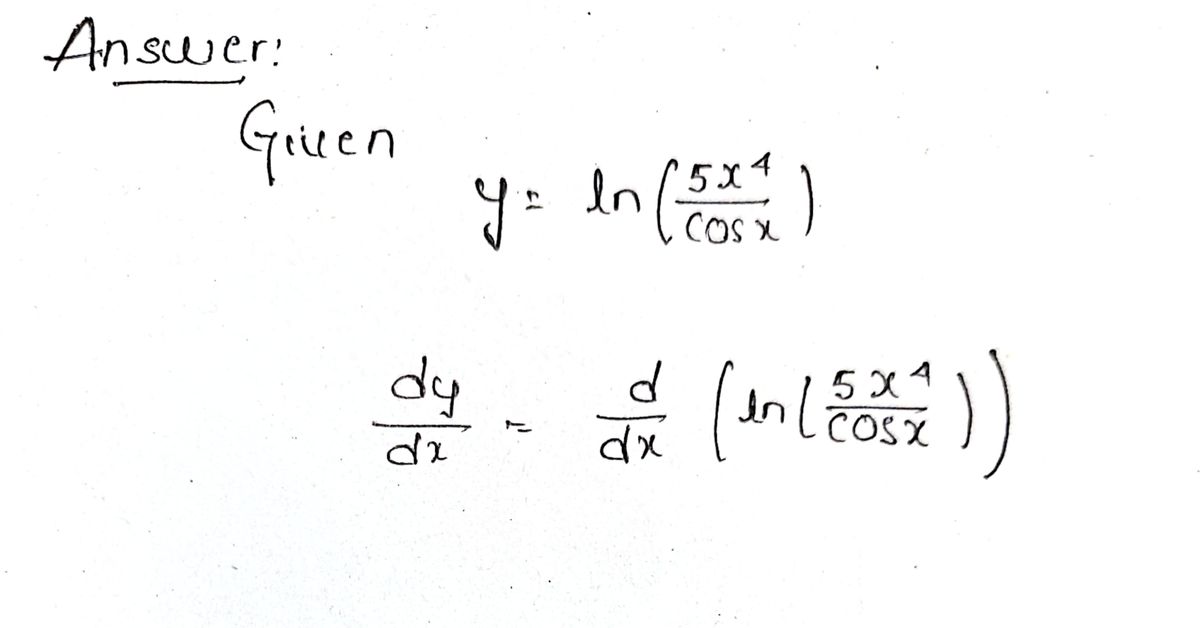 Answer:
Given
y = ln(5x⁴/cosx)
dy/dx = d/dx (ln(5x⁴/cosx))